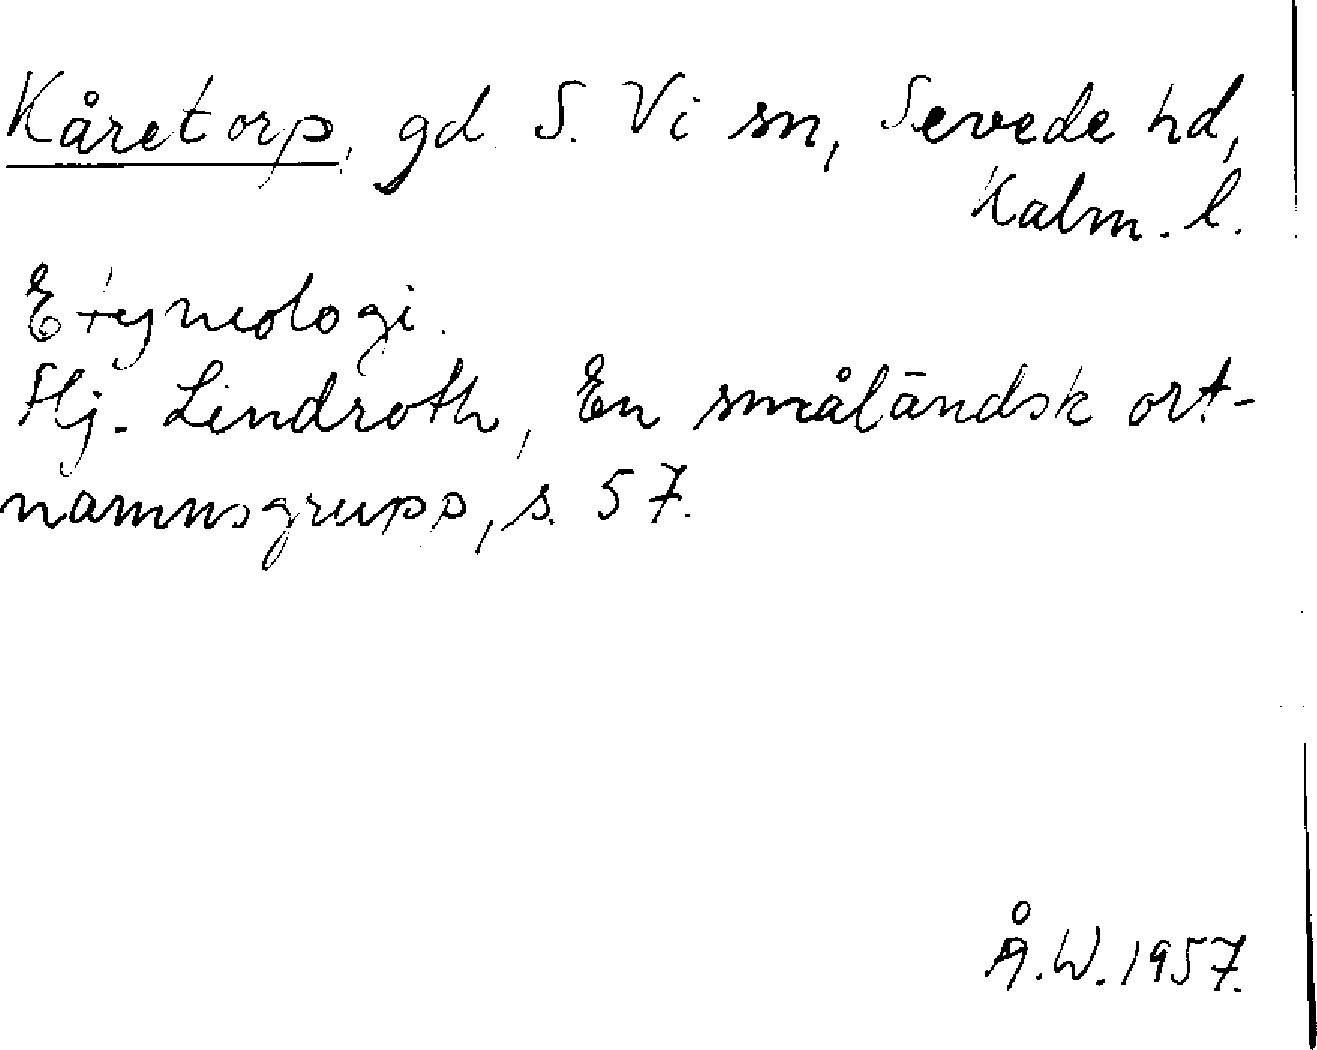 Kåretorp, gd S. Vi sn, Sevede hd,
Kalm. l.
Etymologi.
Hj. Lindroth, En småländsk ort-
namnsgrupp, s. 57.
Å.W. 1957.